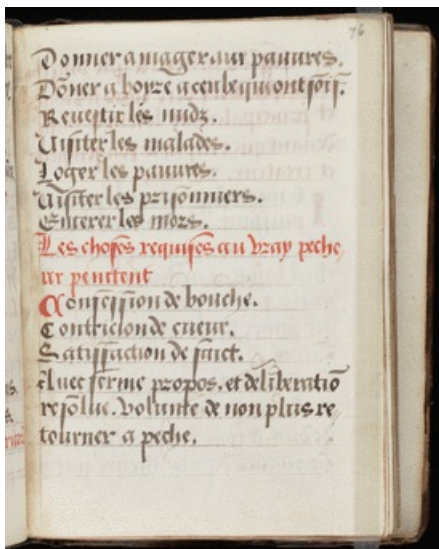 76
Donner a mãger aux pauures.
Dõner a boyre a ceulx qui ont soif.
Reuestir les nudz.
Uisiter les malades.
Loger les pauures.
Uisiter les prisonniers.
Enterer les mors.
Les choses requises au vray peche
ur penitent
Confession de bouche.
Contricion de cueur.
Satisfaction de faict.
Auec ferme propos, et deliberatiõ
resolue. volunte de non plus re
tourner a peche.